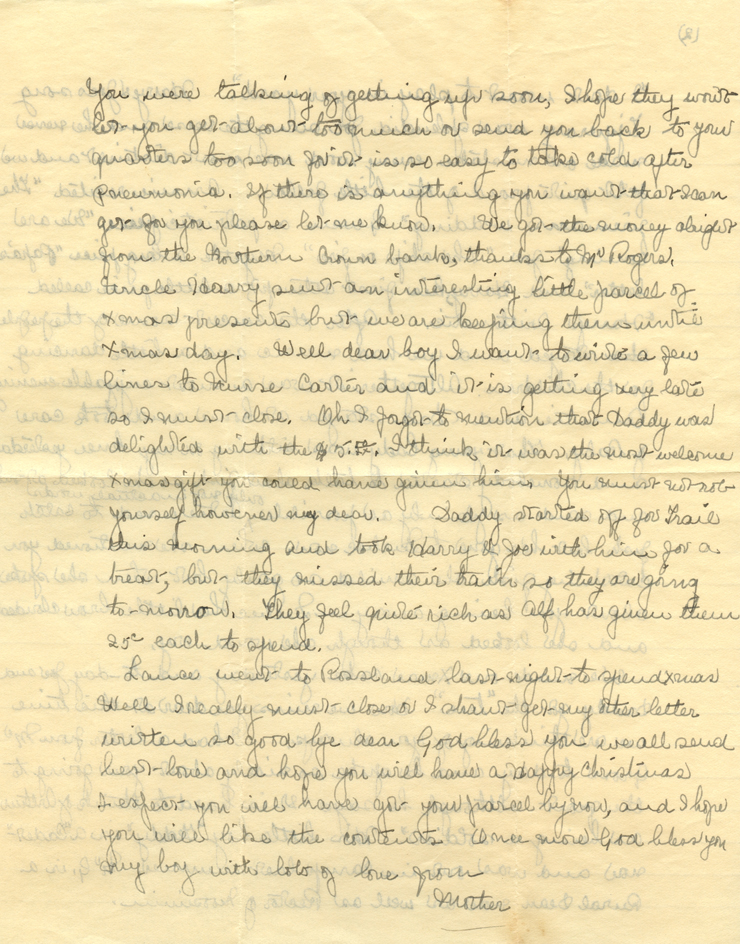 (2)
You were talking of getting up soon, I hope they won't
let you get about too much or send you back to your
quarters too soon for it is so easy to take cold after
pneumonia. If there is anything you want that I can
get for you please let me know. We got the money alright
from the Northern Crown bank, thanks to Mr Rogers.
Uncle Harry sent an interesting little parcel of
Xmas presents but we are keeping them until
Xmas day. Well dear boy I want to write a few
lines to Nurse Carter and it is getting very late
so I must close. Oh I forgot to mention that Daddy was
delighted with the $5.00. I think it was the most welcome
Xmas gift you could have given him. You must not rob
yourself however my dear. Daddy started off for Trail
this morning and took Harry & Joe with him for a
treat, but they missed their train so they are going
to-morrow. They feel quite rich as Alf has given them
25c each to spend.
Lance went to Rossland last night to spend Xmas
Well I really must close or I shan't get my other letter
written so good bye dear God bless you we all send
best love and hope you will have a Happy Christmas
I expect you will have got your parcel by now, and I hope
you will like the contents. Once more God bless you
my boy with lots of love from
Mother